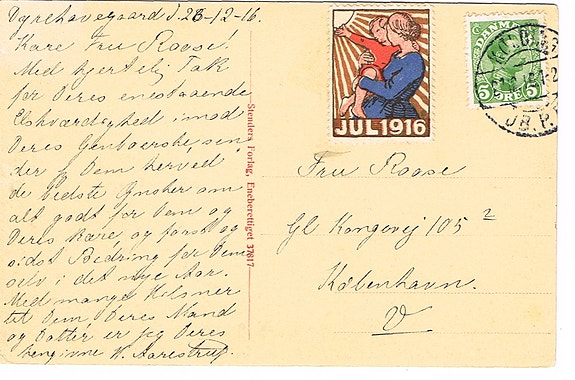 Dyrehavegaard d. 28-12-16.
Kære Fru Roose!
Med hjertelig Tak
for Deres enestaaende
Elskværdighed imod
Deres Genboerske, sen-
der jeg Dem herved
de bedste Ønsker om
alt godt for Dem og
Deres Kære, og først og
sidst Bedring for Dem
selv i det nye Aar.
Med mange Hilsner
til Dem Deres Mand
og Datter er jeg Deres
hengivne H. Aarestrup.
Stenders Forlag, Eneberettiget 37817
JUL 1916
DANMARK
5 ØRE 5
JB.P.
Fru Roose
Gl Kongevej 105 2
København.
V